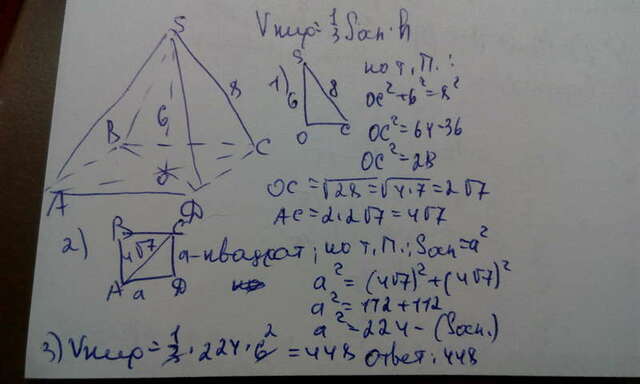 Vпир=1/3 Sосн·h
S
8
6
B
C
O
A
D
1)
S
6
8
O
C
по т.П.:
OC²+6²=8²
OC²=64-36
OC²=28
OC=√28=√4·7=2√7
AC=2·2√7=4√7
2)
B
C
4√7
A
a
D
a-квадрат; по т.П.; Sосн=a²
a²=(4√7)²+(4√7)²
a²=112+112
a²=224-(Sосн.)
3) Vпир=1/3·224·6²=448 Ответ: 448